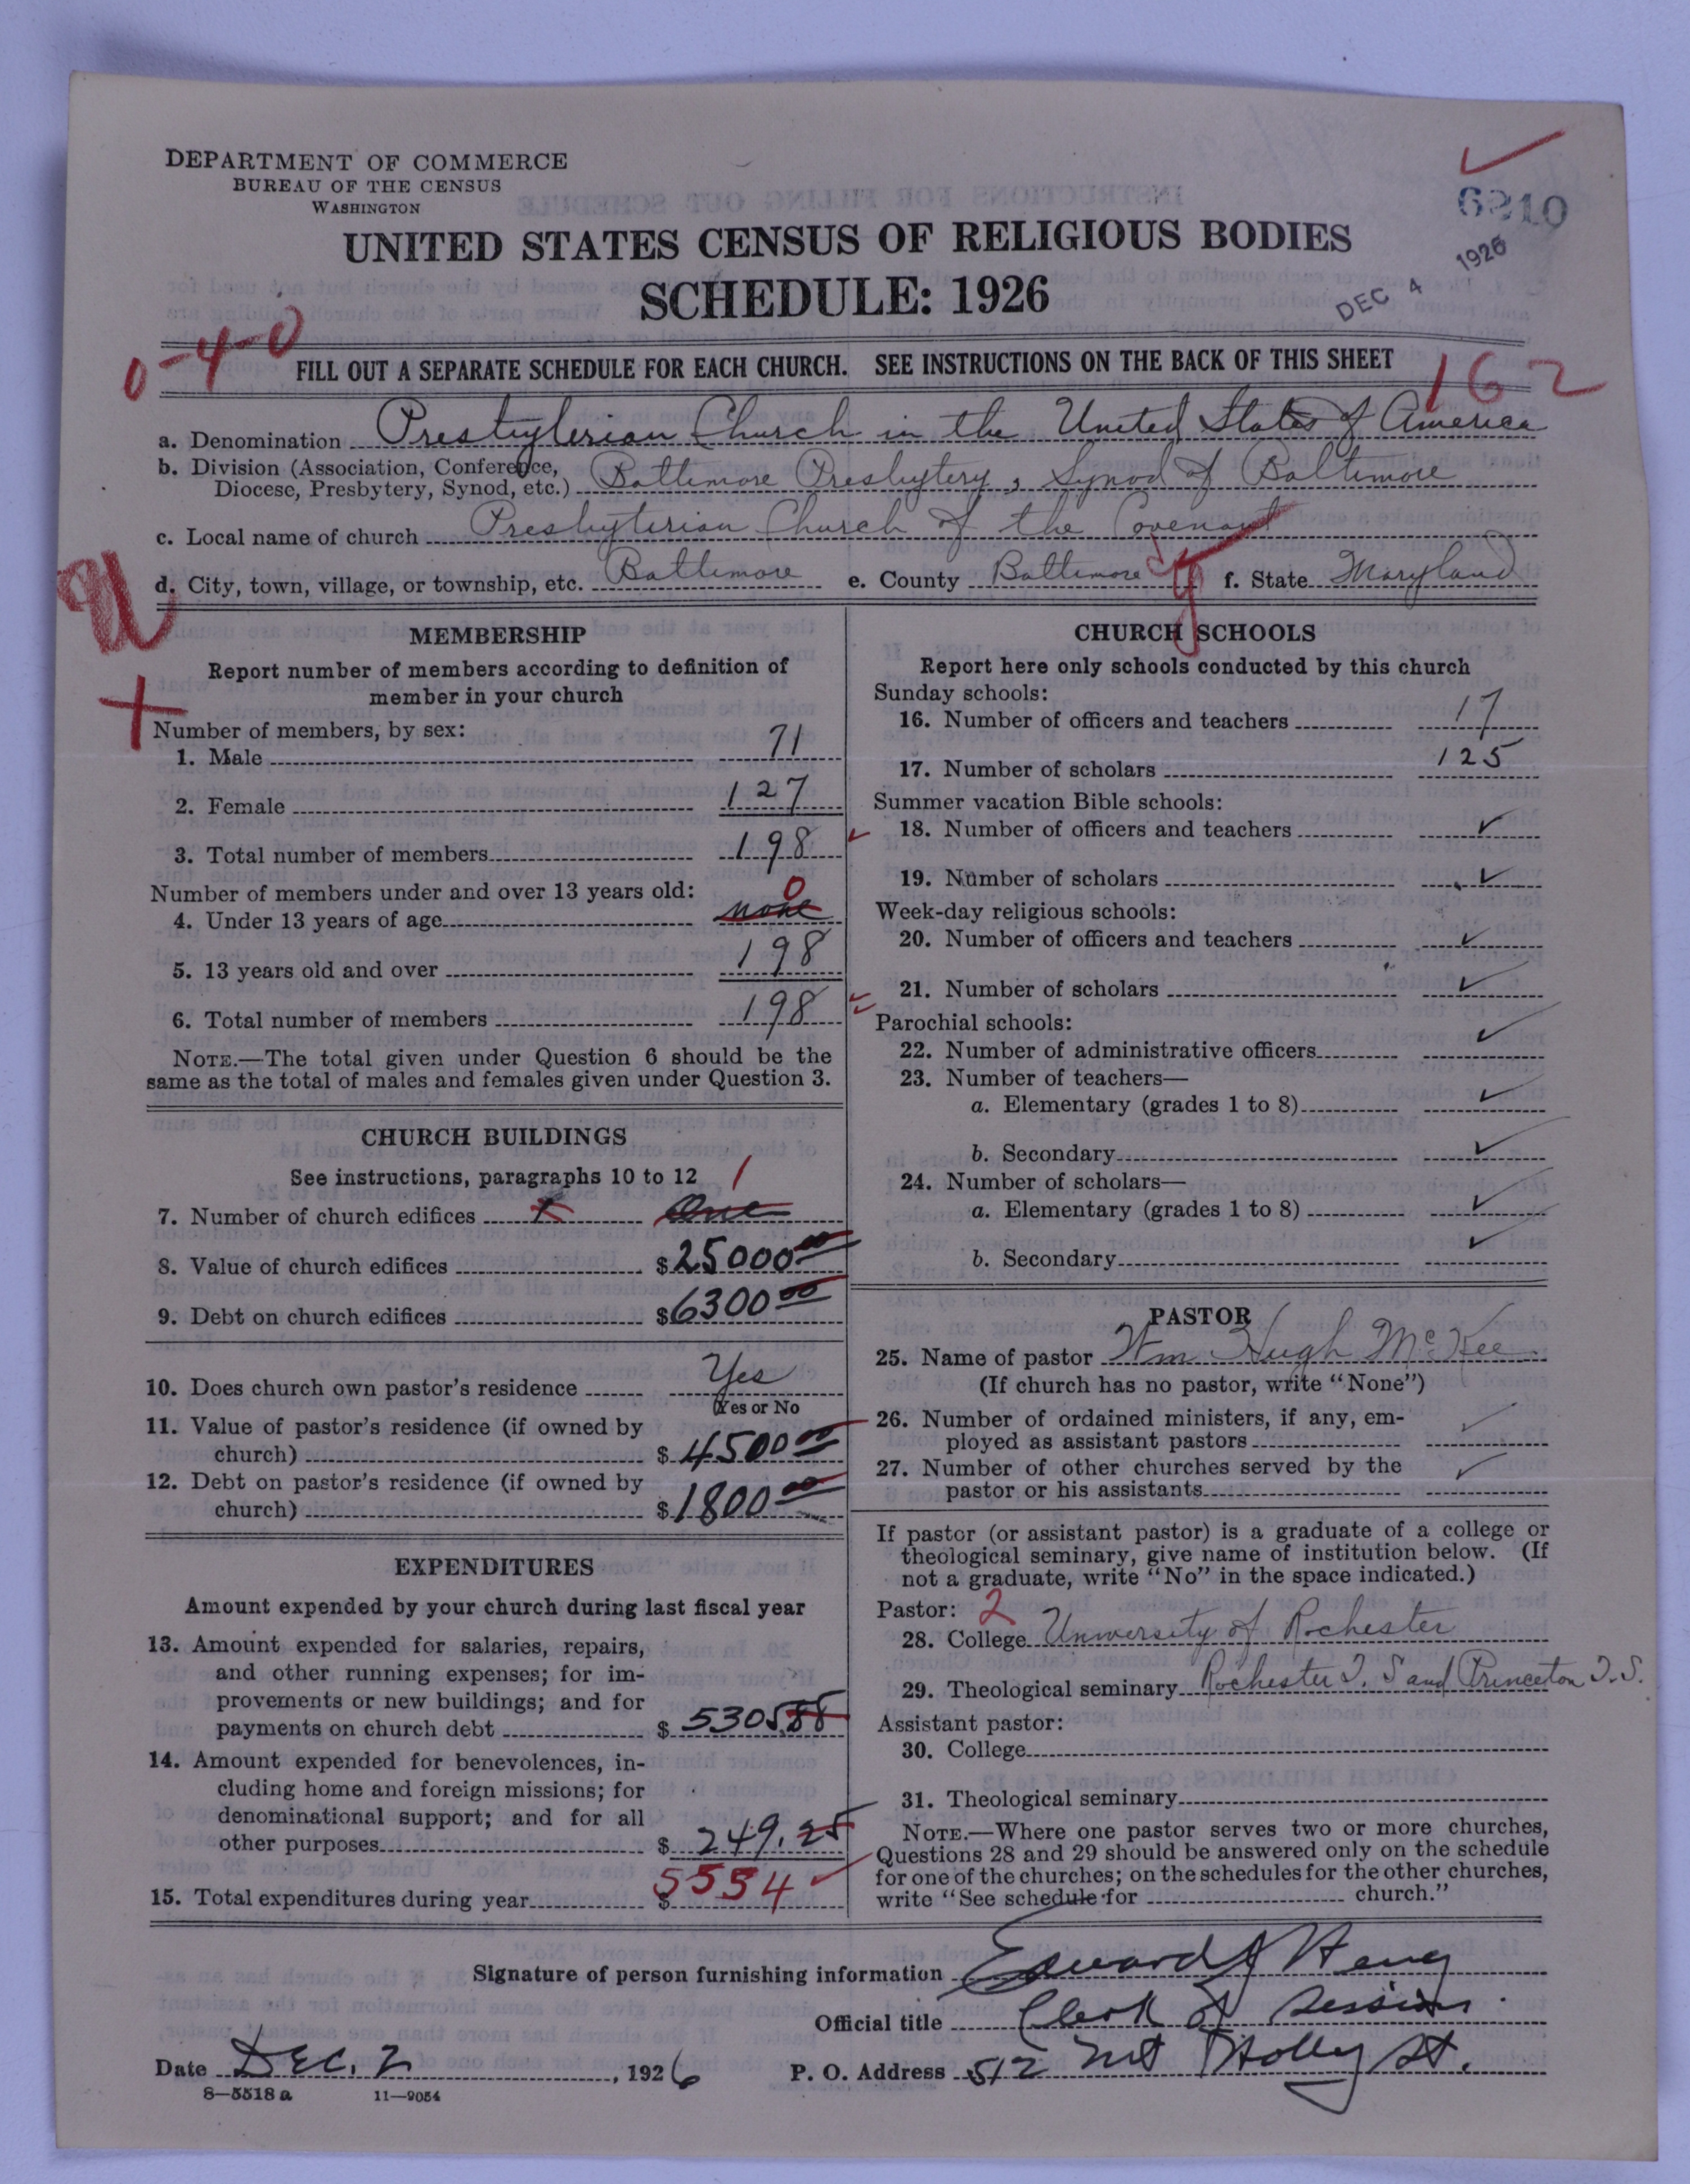 DEPARTMENT OF COMMERCE
BUREAU OF THE CENSUS
WASHINGTON
6210
UNITED STATES CENSUS OF RELIGIOUS BODIES
SCHEDULE: 1926
DEC 4 1926
0-4-0
FILL OUT A SEPARATE SCHEDULE FOR EACH CHURCH. SEE INSTRUCTIONS ON THE BACK OF THIS SHEET
162
a. Denomination Presbyterian Church in the United States of America
b. Division (Association, Conference,
Diocese, Presbytery, Synod, etc.) Baltimore Presbytery, Synod of Baltimore
c. Local name of church Presbyterian Church of the Covenant
d. City, town, village, or township, etc. Baltimore e. County Baltimore f. State Maryland
MEMBERSHIP
Report number of members according to definition of
member in your church
Number of members, by sex:
1. Male 71
2. Female 127
3. Total number of members 198
Number of members under and over 13 years old:
0
4. Under 13 years of age none
5. 13 years old and over 198
6. Total number of members 198
NOTE.—The total given under Question 6 should be the
same as the total of males and females given under Question 3.
CHURCH BUILDINGS
See instructions, paragraphs 10 to 12 1
7. Number of church edifices One
8. Value of church edifices $25000 00
9. Debt on church edifices $6300 00
10. Does church own pastor's residence Yes
(Yes or No
11. Value of pastor's residence (if owned by
church) $4500 00
12. Debt on pastor's residence (if owned by
church) $1800 00
EXPENDITURES
Amount expended by your church during last fiscal year
13. Amount expended for salaries, repairs,
and other running expenses; for im-
provements or new buildings; and for
payments on church debt $5305.88
14. Amount expended for benevolences, in-
cluding home and foreign missions; for
denominational support; and for all
other purposes $249.25
15. Total expenditures during year $5554
CHURCH SCHOOLS
Report here only schools conducted by this church
Sunday schools:
16. Number of officers and teachers 17
17. Number of scholars 125
Summer vacation Bible schools:
18. Number of officers and teachers ✓
19. Number of scholars ✓
Week-day religious schools:
20. Number of officers and teachers ✓
21. Number of scholars ✓
Parochial schools:
22. Number of administrative officers ✓
23. Number of teachers—
a. Elementary (grades 1 to 8) ✓
b. Secondary ✓
24. Number of scholars—
a. Elementary (grades 1 to 8) ✓
b. Secondary ✓
PASTOR
25. Name of pastor Wm Hugh McKee
(If church has no pastor, write "None")
26. Number of ordained ministers, if any, em-
ployed as assistant pastors ✓
27. Number of other churches served by the
pastor or his assistants ✓
If pastor (or assistant pastor) is a graduate of a college or
theological seminary, give name of institution below. (If
not a graduate, write "No" in the space indicated.)
Pastor: 2
28. College University of Rochester
29. Theological seminary Rochester T. S and Princeton T. S.
Assistant pastor:
30. College
31. Theological seminary
NOTE.—Where one pastor serves two or more churches,
Questions 28 and 29 should be answered only on the schedule
for one of the churches; on the schedules for the other churches,
write "See schedule for church."
Signature of person furnishing information Edward
Official title Clerk of Session.
Date DEC. 2, 1926 P. O. Address 512 Mt Holly St.
8—5518 a 11—9054